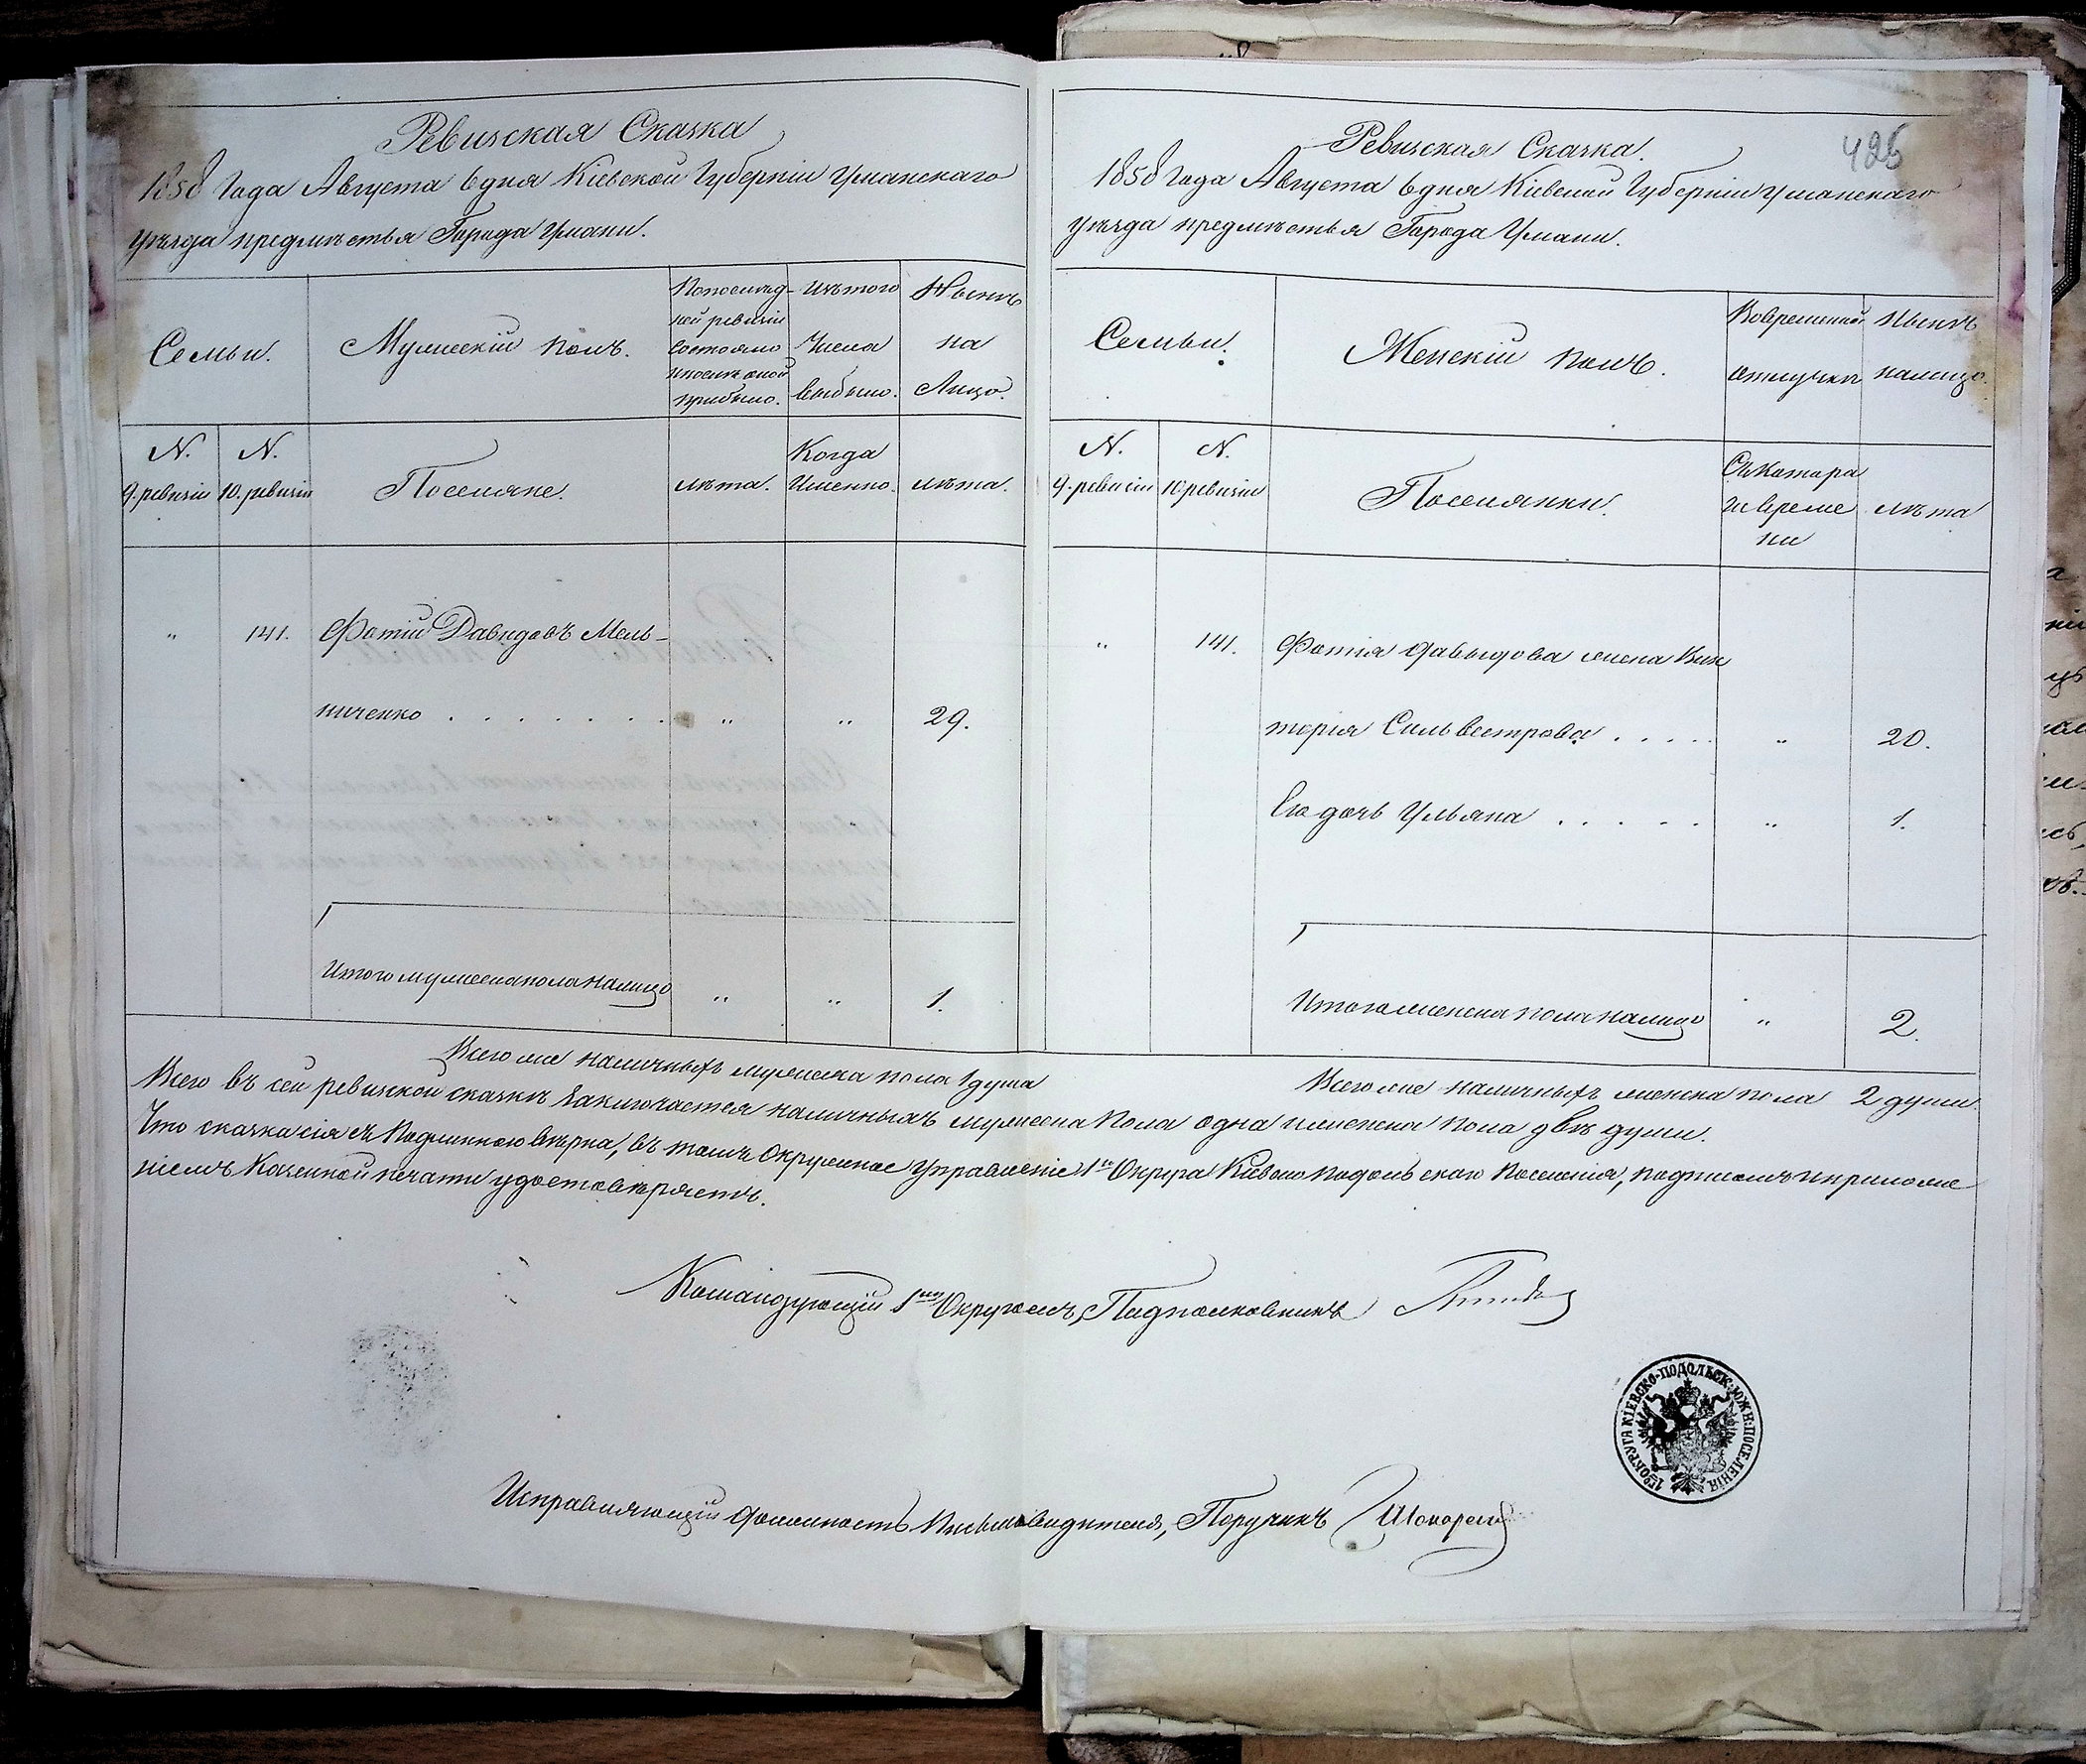 Ревизская Сказка
1858 Года Августа 6 дня Кіевской Губерніи Уманскаго
уѣзда предмѣстья Города Умани.
Семьи.
Мужескій полъ.
Попослѣд-
ней ревизіи
состояло
ипослѣ оной
прибыло.
Изътого
Числа
выбыло.
Нынѣ
на
Лицо.
N.
9. ревизіи
N.
10. ревизіи
Поселяне.
лѣта.
Когда
Именно.
лѣта.
„ 141. Фотій Давидовъ Мель-
ниченко . . . . . . . „ „ 29.
Итого мужеска пола налицо „ „ 1.
Всего же наличныхъ мужеска пола 1 душа
425
Ревизская Сказка.
1858 Года Августа 6 дня Кіевской Губерніи Уманскаго
уѣзда предмѣстья Города Умани.
Семьи.
Женскій полъ.
Вовременной
отлучкѣ
Нынѣ
налицо.
N.
9. ревизіи
N.
10. ревизіи
Поселянки.
Съкотора
го време
ни
лѣта
„ 141. Фотія Давыдова жена Вик
торія Сильвестрова . . . . . „ 20.
Ея дочь Ульяна . . . . . „ 1.
Итого женска пола налицо „ 2.
Всего же наличныхъ женска пола 2 души.
Всего въ сей ревизской сказкѣ Заключается наличныхъ мужеска пола одна и женска пола двѣ души.
Что сказка сія съ Подлинною вѣрна, въ томъ Окружное Управленіе 1го Округа Кіевско Подольскаго Поселенія, подписомъ и приложе
ніемъ Казенной печати удостовѣряетъ.
Командующій 1мъ Округомъ, Подполковникъ
1го ОКРУГА КІЕВСКО-ПОДОЛЬСК: ЮЖН: ПОСЕЛЕНІЯ
Исправляющій должность Письмоводителя, Поручикъ